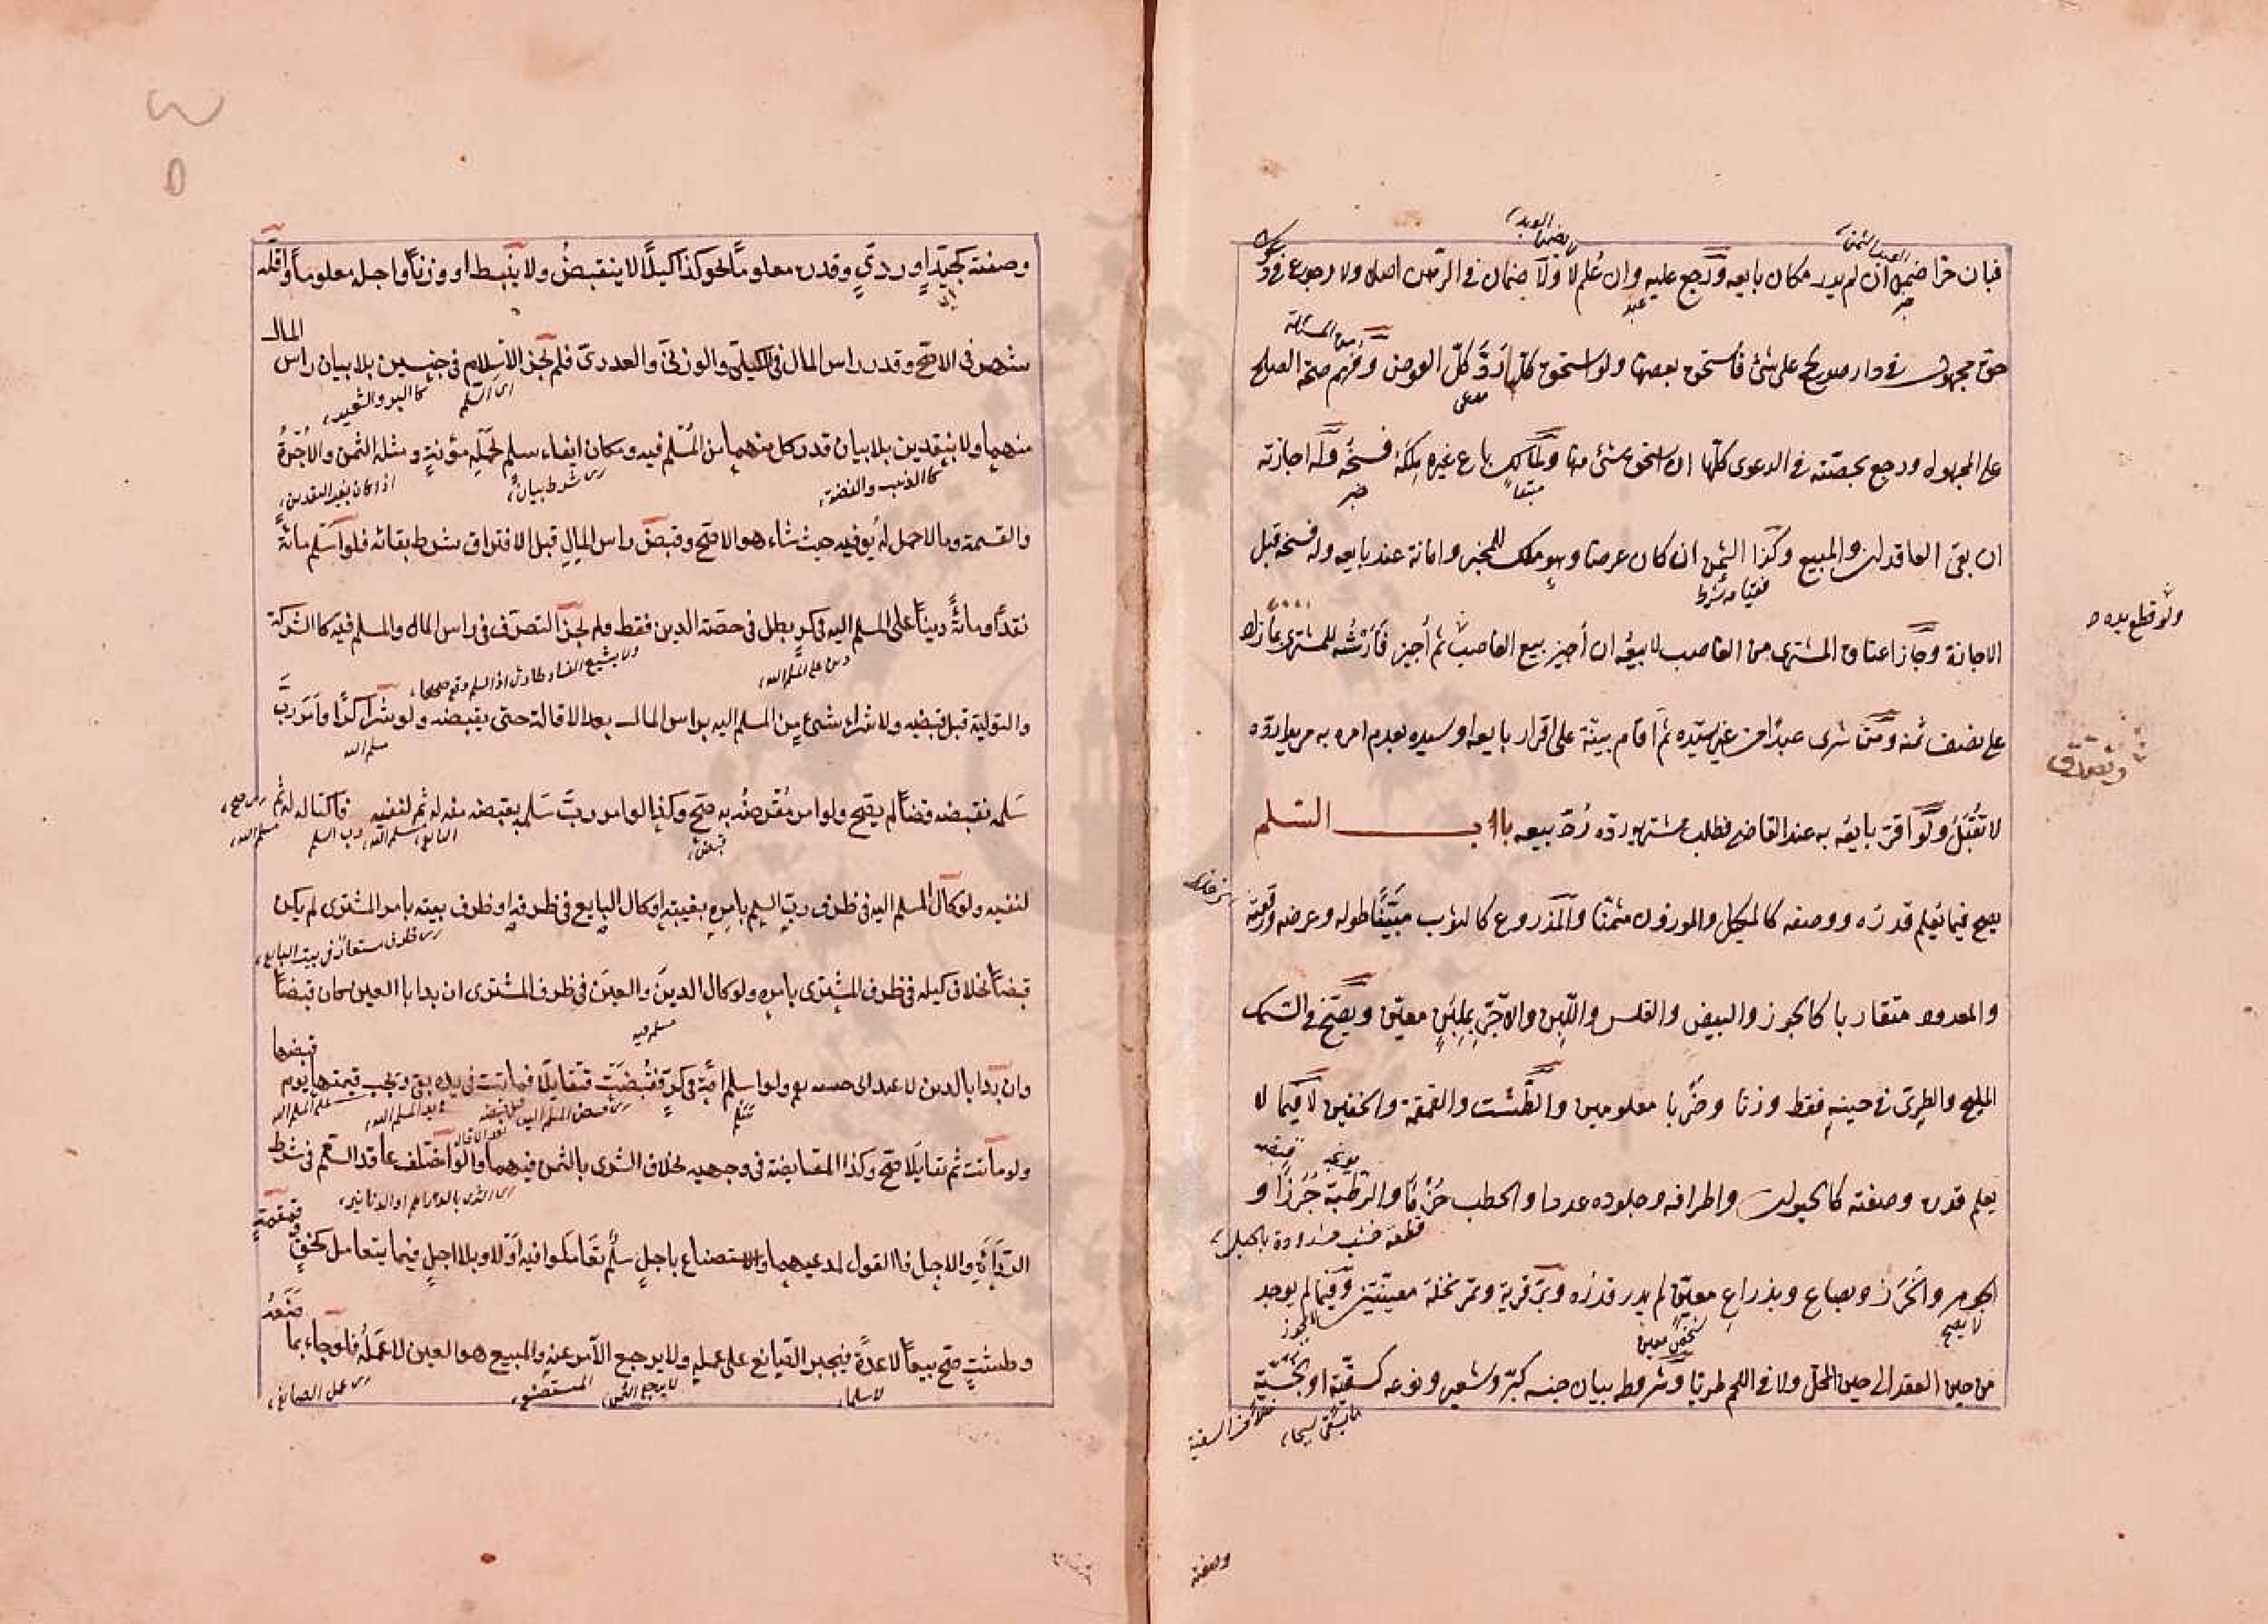 فبان حرا ضمن ان لم يدر مكان بايعه ورجع عليه وان علم لا ولا ضمان في الرهن اصلا ولا رجوع في دعوى
حق مجهول في دار صولح على شئ فاستحق بعضها ولو استحق كلها رد كل العوض وفهم صحة الصلح
على المجهول ورجع بحصته في الدعوى كلها ان استحق شئ منها ولمالك باع غيره ملكه فسخه وله اجازته
ان بقي العاقدان والمبيع وكذا الثمن ان كان عرضا وهو ملك للمجيز وامانة عند بايعه وله فسخه قبل
الاجازة وجاز اعتاق المشترى من الغاصب لا بيعه ان أجيز بيع الغاصب ثم أجيز فأرشه للمشترى بما زاد
على نصف ثمنه ومن شرى عبدا من غير سيده ثم اقام بينة على اقرار بايعه او سيده بعدم امره به مريدا رده
لا تقبل ولو اقر بايعه به عند القاضي فطلب مشتريه رده رد بيعه باب السلم
يصح فيما يعلم قدره ووصفه كالمكيل والموزون مثمنا والمذروع كالثوب مبينا طوله وعرضه ورقعته
والمعدود متقاربا كالجوز والبيض والفلس واللبن والآجر بملبن معين ويصح في السمك
المليح والطرى في حينه فقط وزنا وضربا معلومين والطشت والقمقمة والخفين لا فيما لا
يعلم قدره وصفته كالحيوان واطرافه وجلوده عددا والحطب حزما والرطبة جرزا و
الجوهر والخرز وبصاع وبذراع معين لم يدر قدره وبر قرية وتمر نخلة معينتين وفيما لم يوجد
من حين العقد الى حين المحل ولا في اللحم طريا وشروطه بيان جنسه كبر وشعير ونوعه كسقية او بخسية
ولو قطع يده
وصفته
وصفته كجيد او ردي وقدره معلوما نحو كذا كيلا لا ينقبض ولا ينبسط او وزنا واجله معلوما واقله
شهر في الاصح وقدر راس المال في الكيلي والوزني والعددي فلم يجز الاسلام في جنسين بلا بيان راس المال
كالبر والشعير
منهما ولا بنقدين بلا بيان قدر كل منهما من المسلم فيه ومكان ايفاء سلم لحمله مؤنة ومثله الثمن والاجرة
كالذهب والفضة
والقسمة وما لا حمل له يوفيه حيث شاء هو الاصح وقبض راس المال قبل الافتراق شرط بقائه فلو اسلم مائة
نقدا ومائة دينا على المسلم اليه في كر بطل في حصة الدين فقط ولم يجز التصرف في راس المال والمسلم فيه كالشركة
والتولية قبل قبضه ولا شراء شئ من المسلم اليه براس المال بعد الاقالة حتى يقبضه ولو شرا كرا وامر رب
سلمه بقبضه قضاء لم يصح ولو امر مقرضه به صح وكذا لو امر رب سلمه بقبضه منه له ثم لنفسه فاكتاله له ثم
لنفسه ولو كال المسلم اليه في ظرف رب السلم بامره بغيبته او كال البايع في ظرفه او ظرف بيته بامر المشترى لم يكن
قبضا بخلاف كيله في ظرف المشترى بامره ولو كال الدين والعين في ظرف المشترى ان بدا بالعين كان قبضا
وان بدا بالدين لا عند ابي حنيفة ولو اسلم امة في كر وقبضت فتقايلا فماتت في يده بقي وتجب قيمتها يوم قبضها
ولو ماتت ثم تقايلا صح وكذا المقايضة في وجهيه بخلاف الشرى بالثمن فيهما ولو اختلف عاقدا السلم في شرط
الرداءة والاجل فالقول لمدعيهما والاستصناع باجل سلم تعاملوا فيه او لا وبلا اجل فيما يتعامل كخف وقمقمة
وطشت صح بيعا لا عدة فيجبر الصانع على عمله ولا يرجع الآمر عنه والمبيع هو العين لا عمله فلو جاء بما صنعه
لا سلما
المستصنع